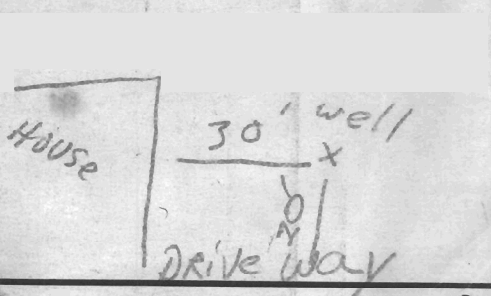 House
30' well
x
20'
Drive way